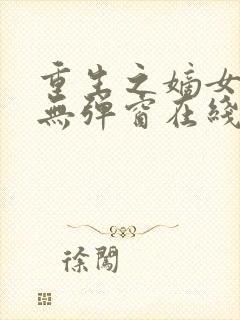 重生之嫡女
無彈窗在綫
徐闖